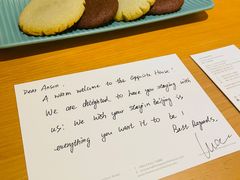 Dear Aaron,
A warm welcome to the Opposite House!
We are delighted to have you staying with
us. We wish your stay in Beijing is
everything you want it to be!
Best Regards,